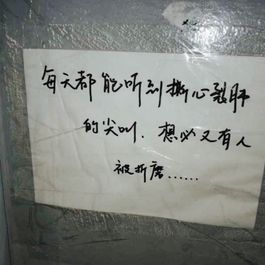 每天都能听到撕心裂肺
的尖叫．想必又有人
被折磨……